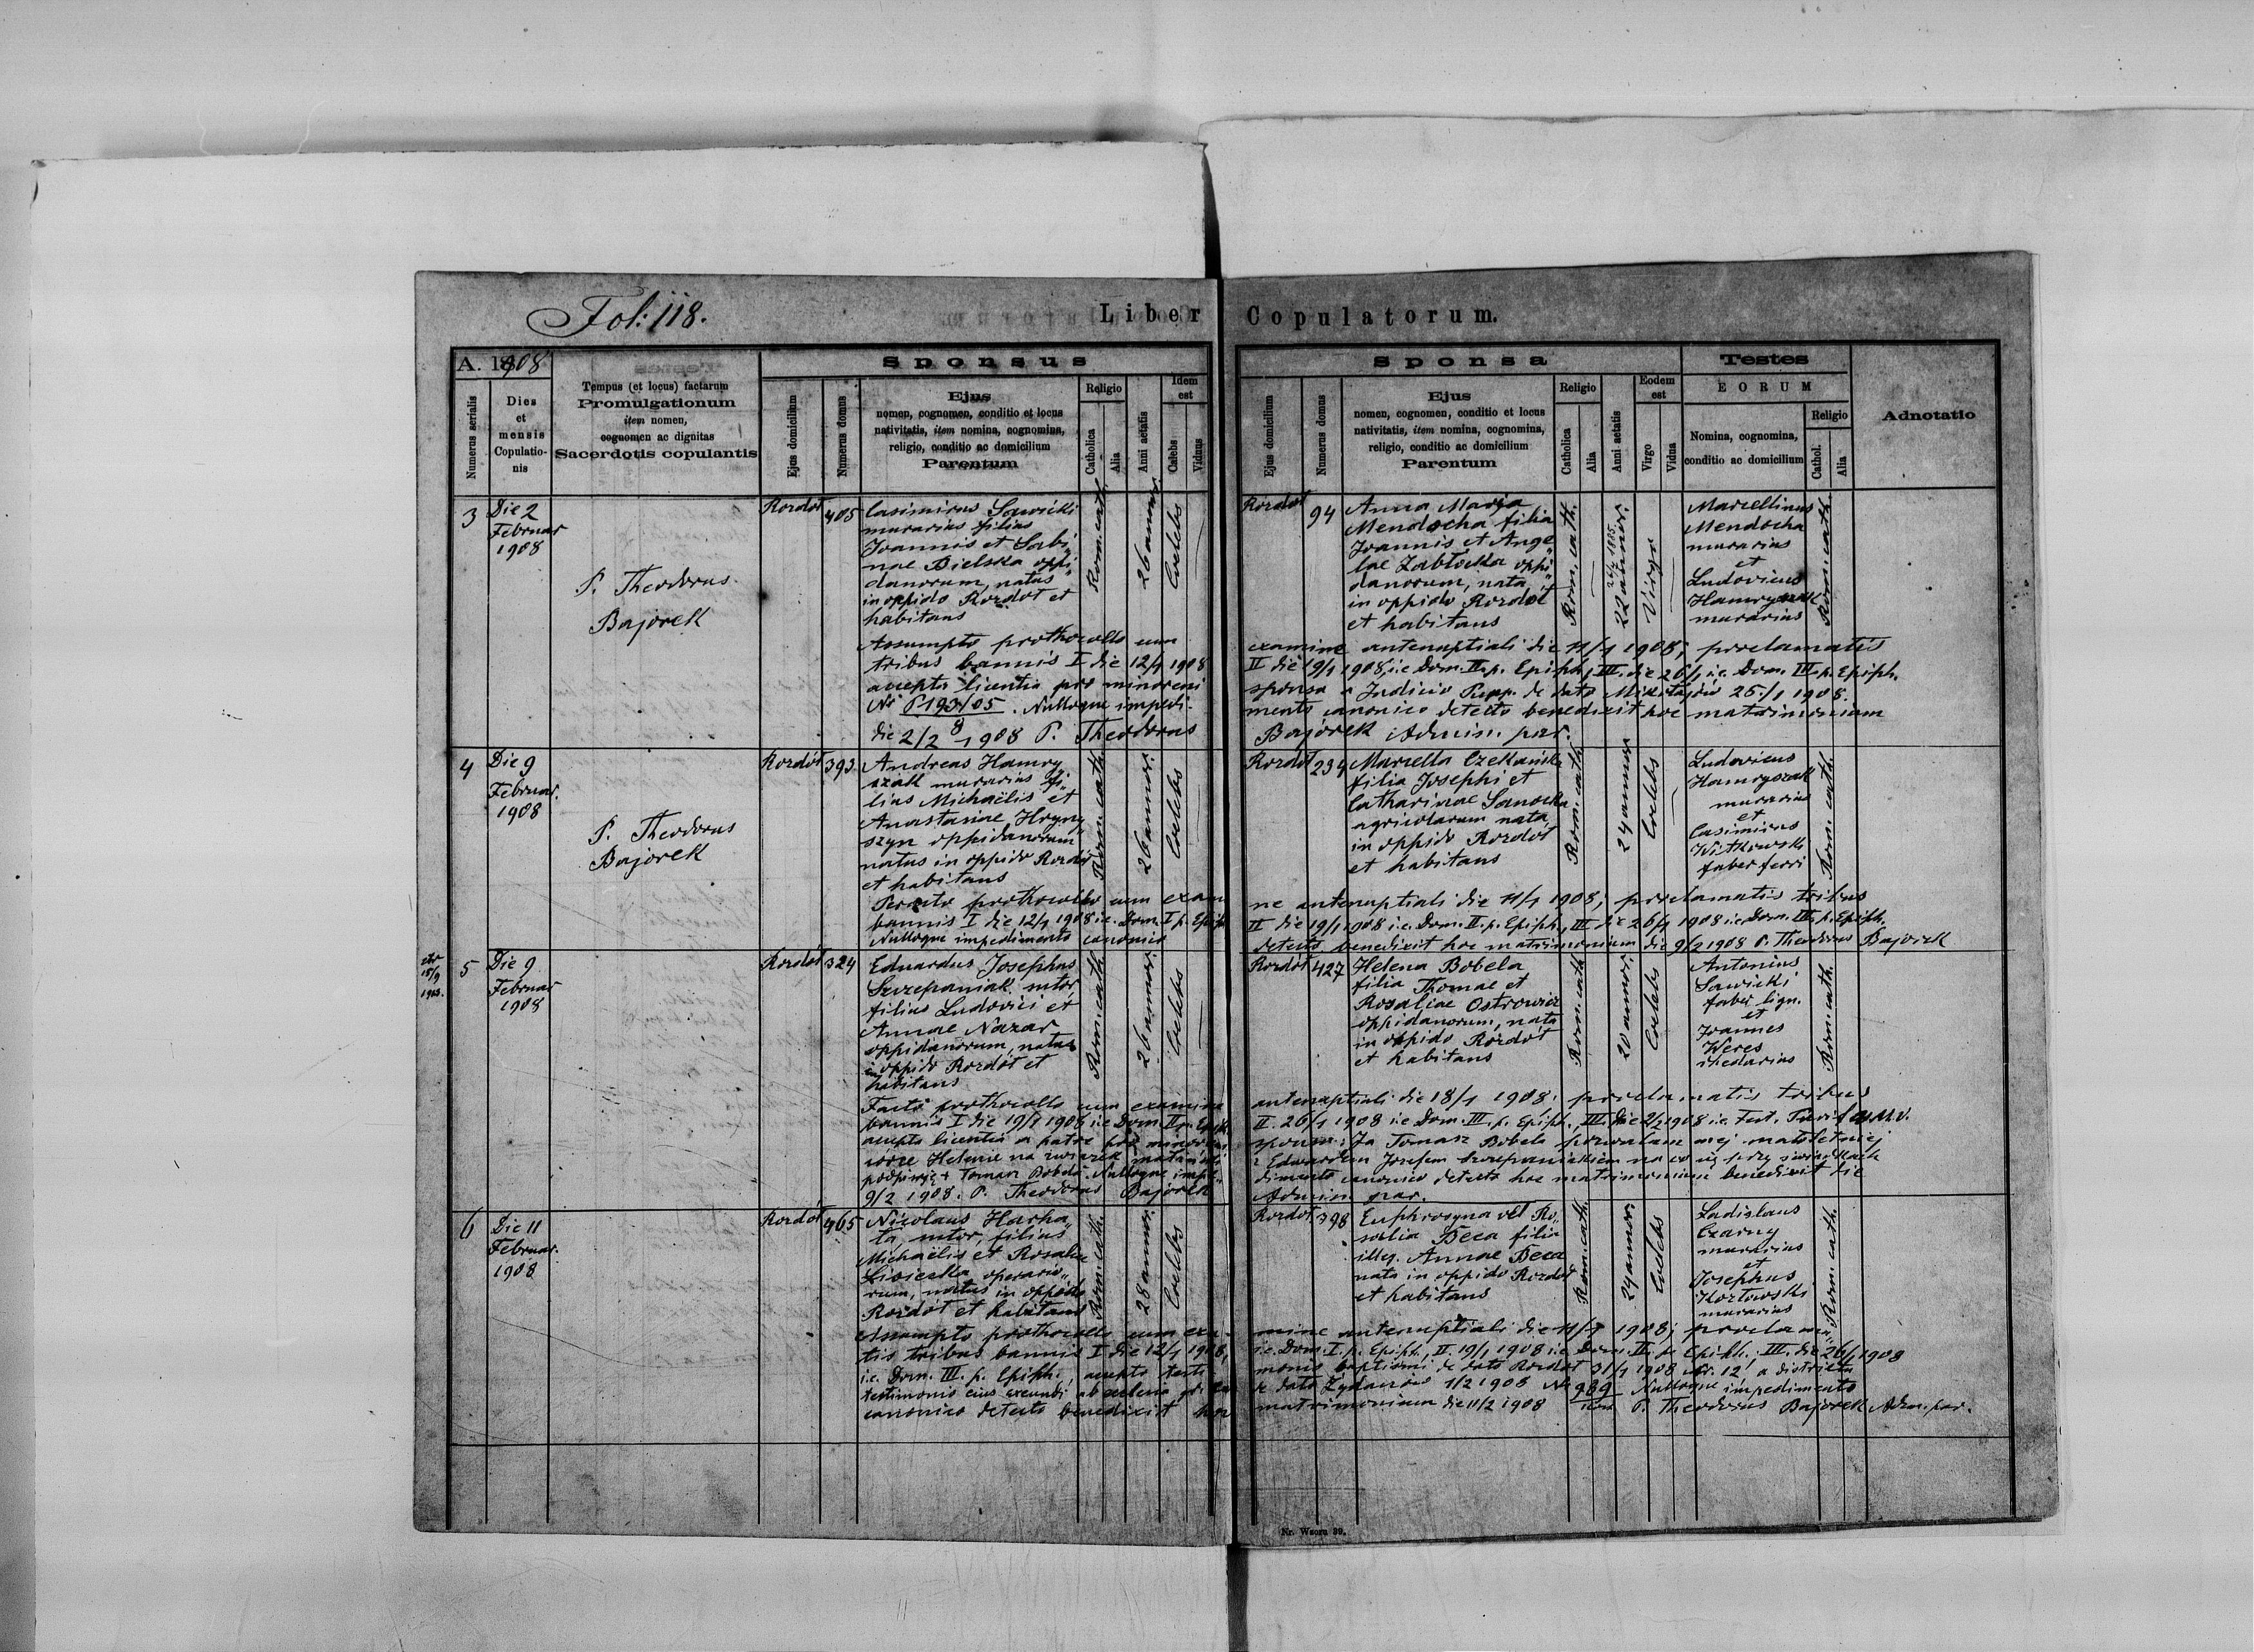 Fol: 118.
Liber Copulatorum.
A. 1908
Numerus serialis
Dies et mensis Copulatio-nis
Tempus (et locus) factarum
Promulgationum
item nomen,
cognomen ac dignitas
Sacerdotis copulantis
Sponsus
Ejus domicilium
Numerus domus
Ejus
nomen, cognomen, conditio et locus
nativitatis, item nomina, cognomina,
religio, conditio ac domicilium
Parentum
Religio
Catholica
Alia
Anni aetatis
Idem est
Caelebs
Viduus
Sponsa
Ejus domicilium
Numerus domus
Ejus
nomen, cognomen, conditio et locus
nativitatis, item nomina, cognomina,
religio, conditio ac domicilium
Parentum
Religio
Catholica
Alia
Anni aetatis
Eodem est
Virgo
Vidua
Testes
EORUM
Nomina, cognomina,
conditio ac domicilium
Religio
Cathol.
Alia
Adnotatio
3
Die 2
Februar
1908
P. Theodorus
Bajorek
Rozdół
405
Casimirus Sawicki
murarius filius
Joannis et Sabi„
nae Bielska oppi„
danorum, natus
in oppido Rozdół et
habitans
Rom. cath.
26 annor.
Coelebs
Rozdół
94
Anna Maria
Mendocha filia
Joannis et Ange„
lae Zabłocka oppi„
danorum, nata
in oppido Rozdół
et habitans
Rom. cath.
22 annor.
Virgo
Marcellinus
Mendocha
murarius
et
Ludovicus
Hamryszak
murarius
Rom. cath.
Assumpto prothocollo cum examine antenuptiali die 11/1 1908; proclamatis
tribus bannis I die 12/1 1908 II die 19/1 1908, i.e. Dom. II. p. Epiph., III. die 26/1 i.e. Dom. III. p. Epiph.
accepta licentia pro minoreni sponsa a Judicio Pupp. de dato Mikołajów 25./1 1908.
No P 193/05. Nulloque impedi- mento canonico detecto benedixit hoc matrimonium
8
die 2/2 1908 P. Theodorus Bajorek Admin. par.
4
Die 9
Februar.
1908
P. Theodorus
Bajorek
Rozdół
393
Andreas Hamry
szak murarius fi„
lius Michaëlis et
Anastasiae Hryny„
szyn oppidanorum
natus in oppido Rozdół
et habitans
Rom. cath.
26 annor.
Coelebs
Rozdół
239
Marcella Czekańska
filia Josephi et
Catharinae Sanocka
agricolarum nata
in oppido Rozdół
et habitans
Rom. cath.
24 annor.
Coelebs
Ludovicus
Hamryszak
murarius
et
Casimirus
Witkowski
faber ferri
Rom. cath.
Peracto prothocollo cum exami ne antenuptiali die 11/1 1908; proclamatis tribus
bannis I die 12/1 1908 i.e. Dom. I p. Epiph. II die 19/1 1908 i.e. Dom. II. p. Epiph., III die 26/1 1908 i.e. Dom. III. p. Epiph.
Nulloque impedimento canonico detecto benedixit hoc matrimonium die 9/2 1908 P. Theodorus Bajorek
5
Die 9
Februar
1908
Rozdół
324
Eduardus Josephus
Szczepaniak sutor,
filius Ludovici et
Annae Nazar
oppidanorum, natus
in oppido Rozdół et
habitans
Rom. cath.
26 annor.
Coelebs
Rozdół
427
Helena Bobela
filia Thomae et
Rosaliae Ostrowicz
oppidanorum, nata
in oppido Rozdół
et habitans
Rom. cath.
20 annor.
Coelebs
Antonius
Sawicki
faber lign.
et
Joannes
Weres
rhedarius
Rom. cath.
Facto prothocollo cum examine antenuptiali die 18/1 1908. proclamatis tribus
bannis I die 19/1 1908 i.e. Dom. II p. Epiph. II. 26/1 1908 i.e. Dom. III. p. Epiph., III. die 2/2 1908 i.e. Fest. Purif. B.M.V.
accepta licentia a patre pro minoreni sponsa: Ja Tomasz Bobela pozwalam mej małoletniej
córce Helenie na związek małżeński z Edwardem Józefem Szczepaniakiem na co się przy świadkach
podpisuję + Tomasz Bobela. Nulloque impe„ dimento canonico detecto hoc matrimonium benedixit die
9/2 1908. P. Theodorus Bajorek Admin. par.
6
Die 11
Februar.
1908
Rozdół
465
Nicolaus Harha„
ta, sutor, filius
Michaëlis et Rosaliae
Lisiecka operario„
rum, natus in oppido
Rozdół et habitans
Rom. cath.
28 annor.
Coelebs
Rozdół
398
Euphrosyna vel Ro„
salia Beca filia
illeg. Annae Beca
nata in oppido Rozdół
et habitans
Rom. cath.
24 annor.
Coelebs
Ladislaus
Czarny
murarius
et
Josephus
Kozłowski
murarius
Rom. cath.
Assumpto prothocollo cum exa- mine antenuptiali die 11/1 1908; proclama„
tis tribus bannis I die 12/1 1908, i.e. Dom. I. p. Epiph., II. 19/1 1908 i.e. Dom. II. p. Epiph. III. die 26/1 1908
i.e. Dom. III. p. Epiph., accepto testi monio baptismi de dato Rozdół 31/1 1908 Nr. 12 a districtu
testimonio eius ab ecclesia gr. de dato Żydaczów 1/2 1908 No 989 Nulloque impedimento
canonico detecto benedixit hoc matrimonium die 11/2 1908 P. Theodorus Bajorek Adm. par.
Nr. Wzoru 39.